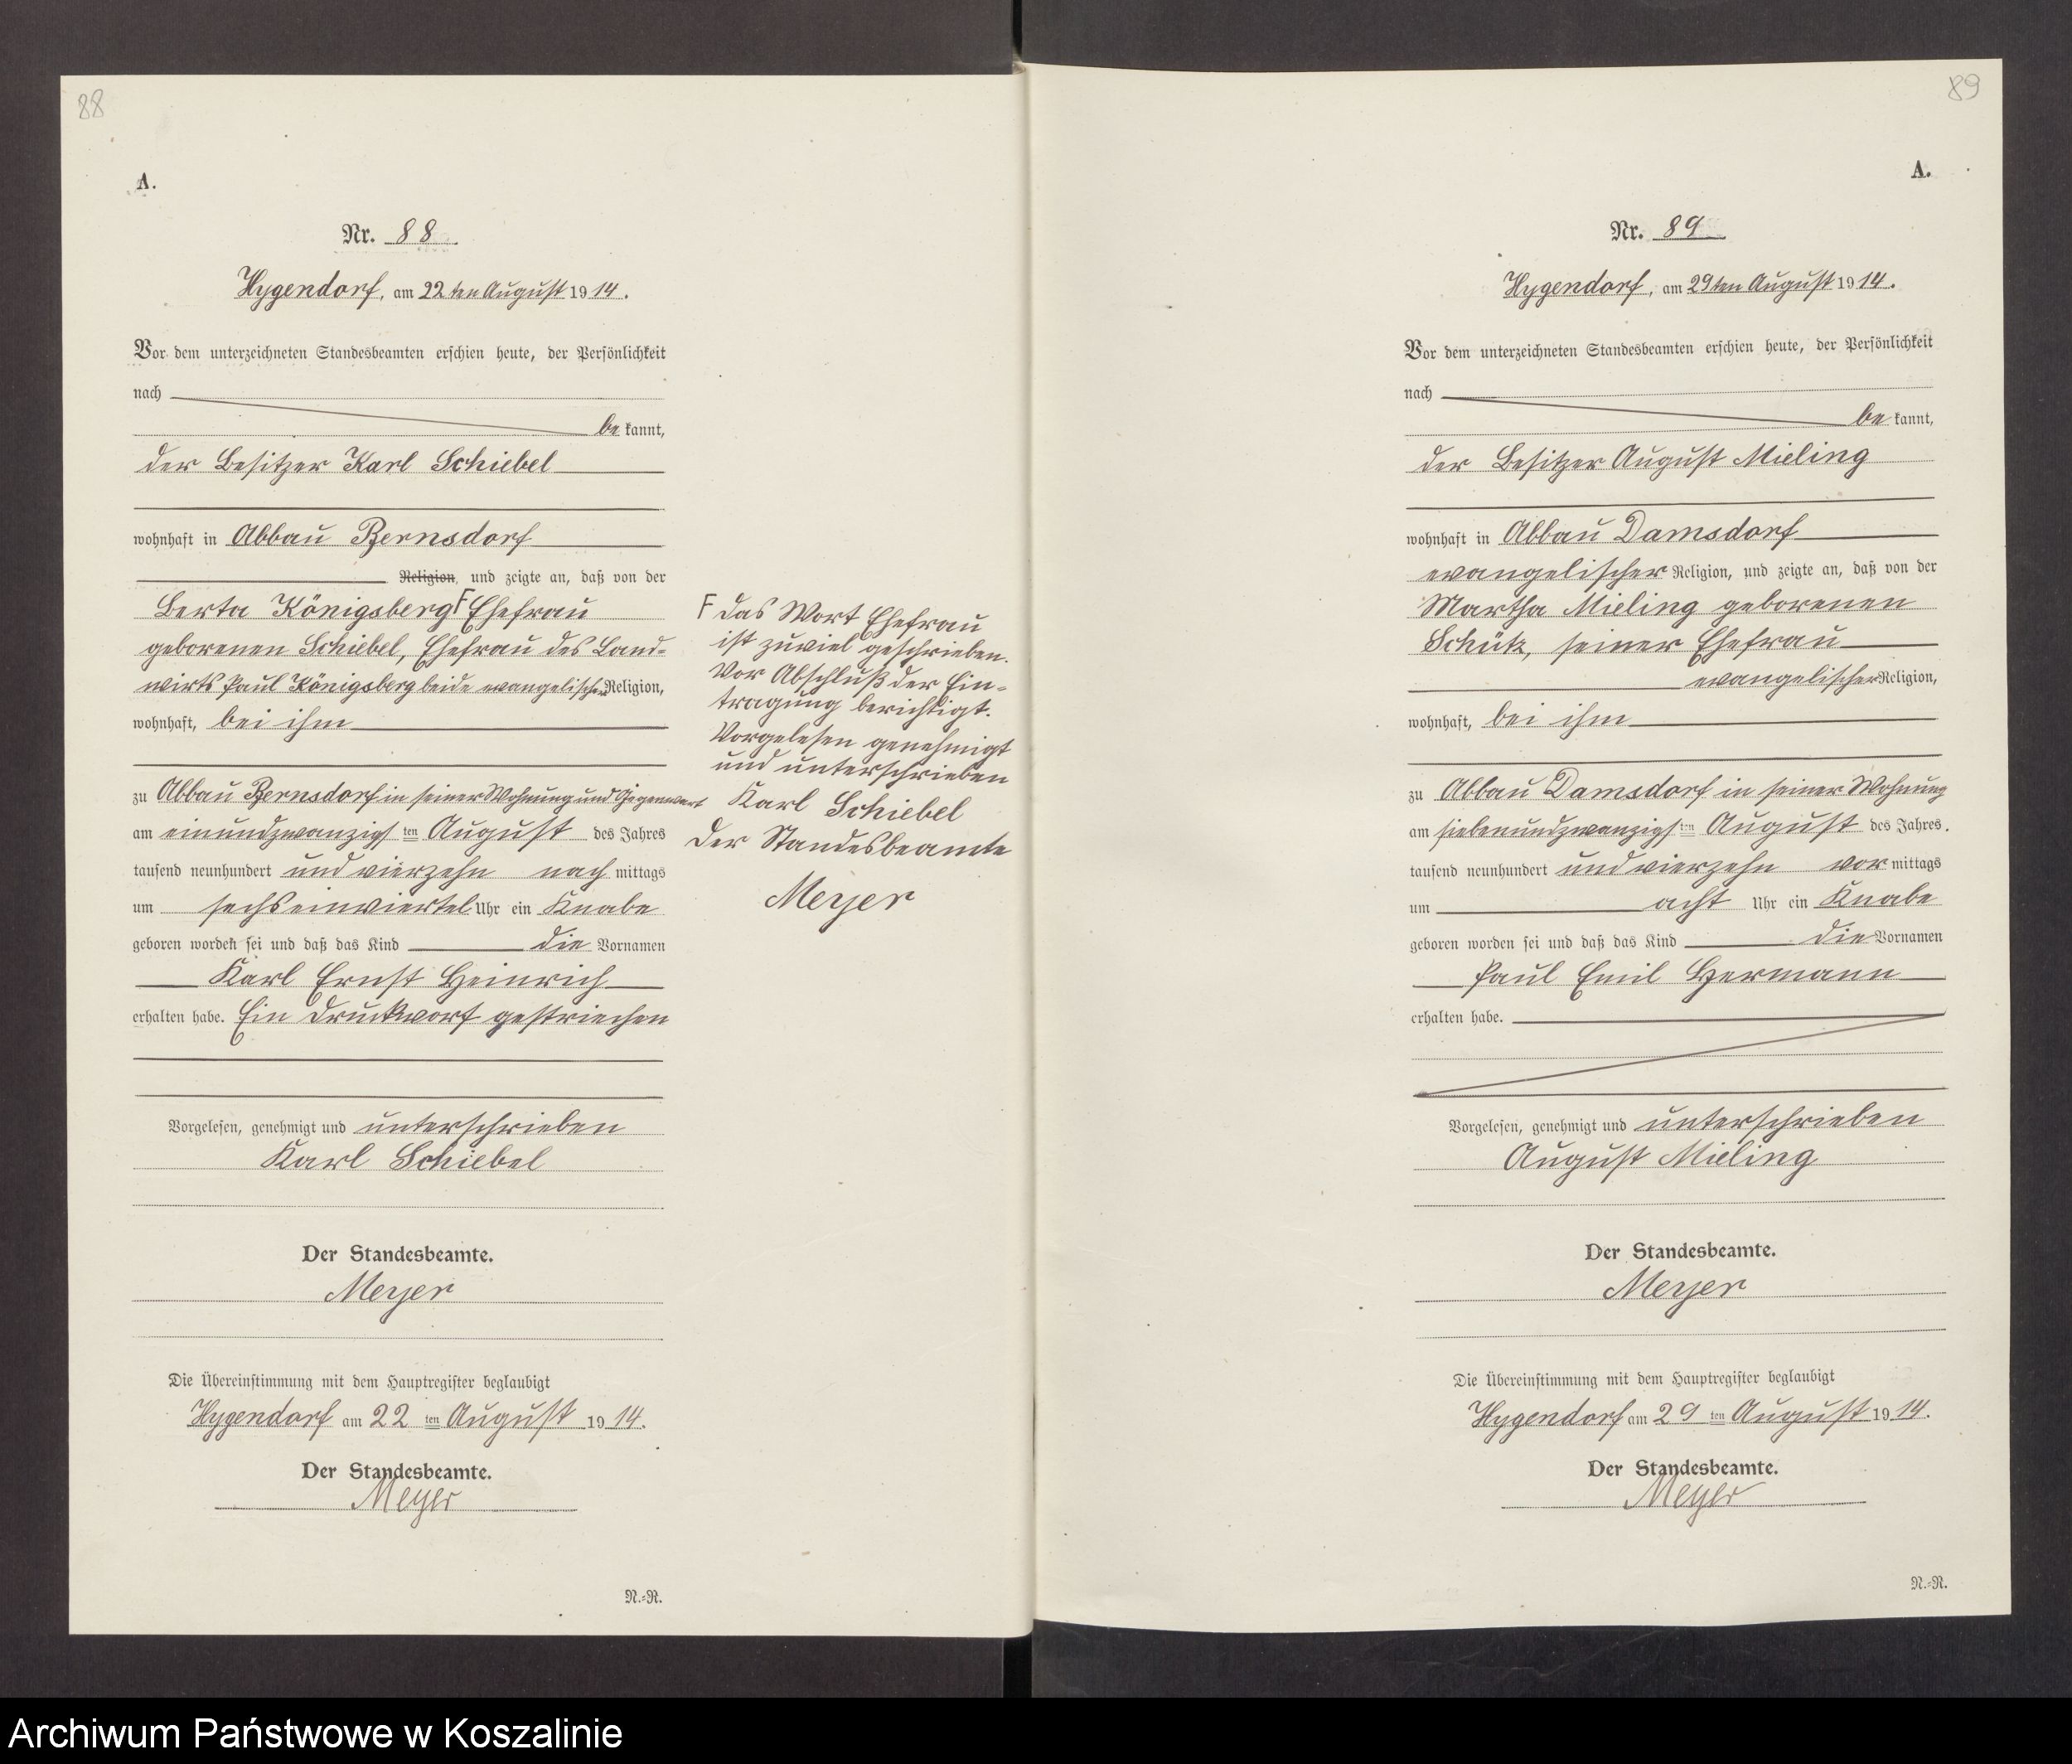 88
A.
Nr. 88
Hygendorf, am 22ten August 1914.
Vor dem unterzeichneten Standesbeamten erschien heute, der Persönlichkeit
nach
be kannt,
der Besitzer Karl Schiebel
wohnhaft in Abbau Bernsdorf
Religion, und zeigte an, daß von der
Berta Königsberg F Ehefrau
geborenen Schiebel, Ehefrau des Land-
wirts Paul Königsberg beide evangelischer Religion,
wohnhaft, bei ihm
zu Abbau Bernsdorf in seiner Wohnung und Gegenwart
am einundzwanzigsten August des Jahres
tausend neunhundert und vierzehn nach mittags
um sechseinviertel Uhr ein Knabe
geboren worden sei und daß das Kind die Vornamen
Karl Ernst Heinrich
erhalten habe. Ein Druckwort gestriechen
Vorgelesen, genehmigt und unterschrieben
Karl Schiebel
Der Standesbeamte.
Meyer
Die Übereinstimmung mit dem Hauptregister beglaubigt
Hygendorf am 22 ten August 1914.
Der Standesbeamte.
Meyer
N.-R.
F Das Wort Ehefrau
ist zuviel geschrieben.
Vor Abschluß der Ein-
tragung berichtigt.
Vorgelesen genehmigt
und unterschrieben
Karl Schiebel
Der Standesbeamte
Meyer
89
A.
Nr. 89
Hygendorf, am 29ten August 1914.
Vor dem unterzeichneten Standesbeamten erschien heute, der Persönlichkeit
nach
be kannt,
der Besitzer August Mieling
wohnhaft in Abbau Damsdorf
evangelischer Religion, und zeigte an, daß von der
Martha Mieling geborenen
Schütz, seiner Ehefrau
evangelischer Religion,
wohnhaft, bei ihm
zu Abbau Damsdorf in seiner Wohnung
am siebenundzwanzigsten August des Jahres.
tausend neunhundert und vierzehn vor mittags
um acht Uhr ein Knabe
geboren worden sei und daß das Kind die Vornamen
Paul Emil Hermann
erhalten habe.
Vorgelesen, genehmigt und unterschrieben
August Mieling
Der Standesbeamte.
Meyer
Die Übereinstimmung mit dem Hauptregister beglaubigt
Hygendorf am 29 ten August 1914.
Der Standesbeamte.
Meyer
N.-R.
Archiwum Państwowe w Koszalinie